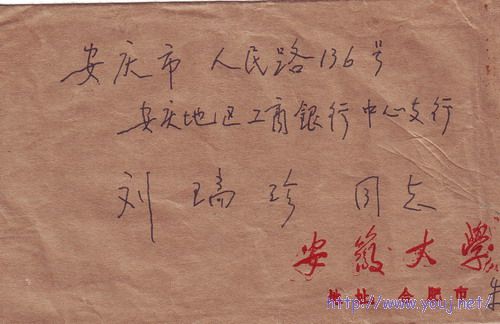 安庆市 人民路136号
安庆地区工商銀行中心支行
刘 瑞珍 同志
安徽大學
地址 合肥市 朱
http://www.youj.net/